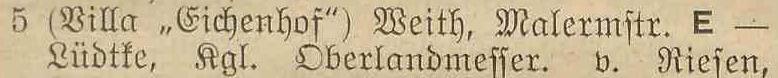 5 (Villa „Eichenhof“) Weith, Malermstr. E —
Lüdtke, Kgl. Oberlandmesser. v. Riesen,